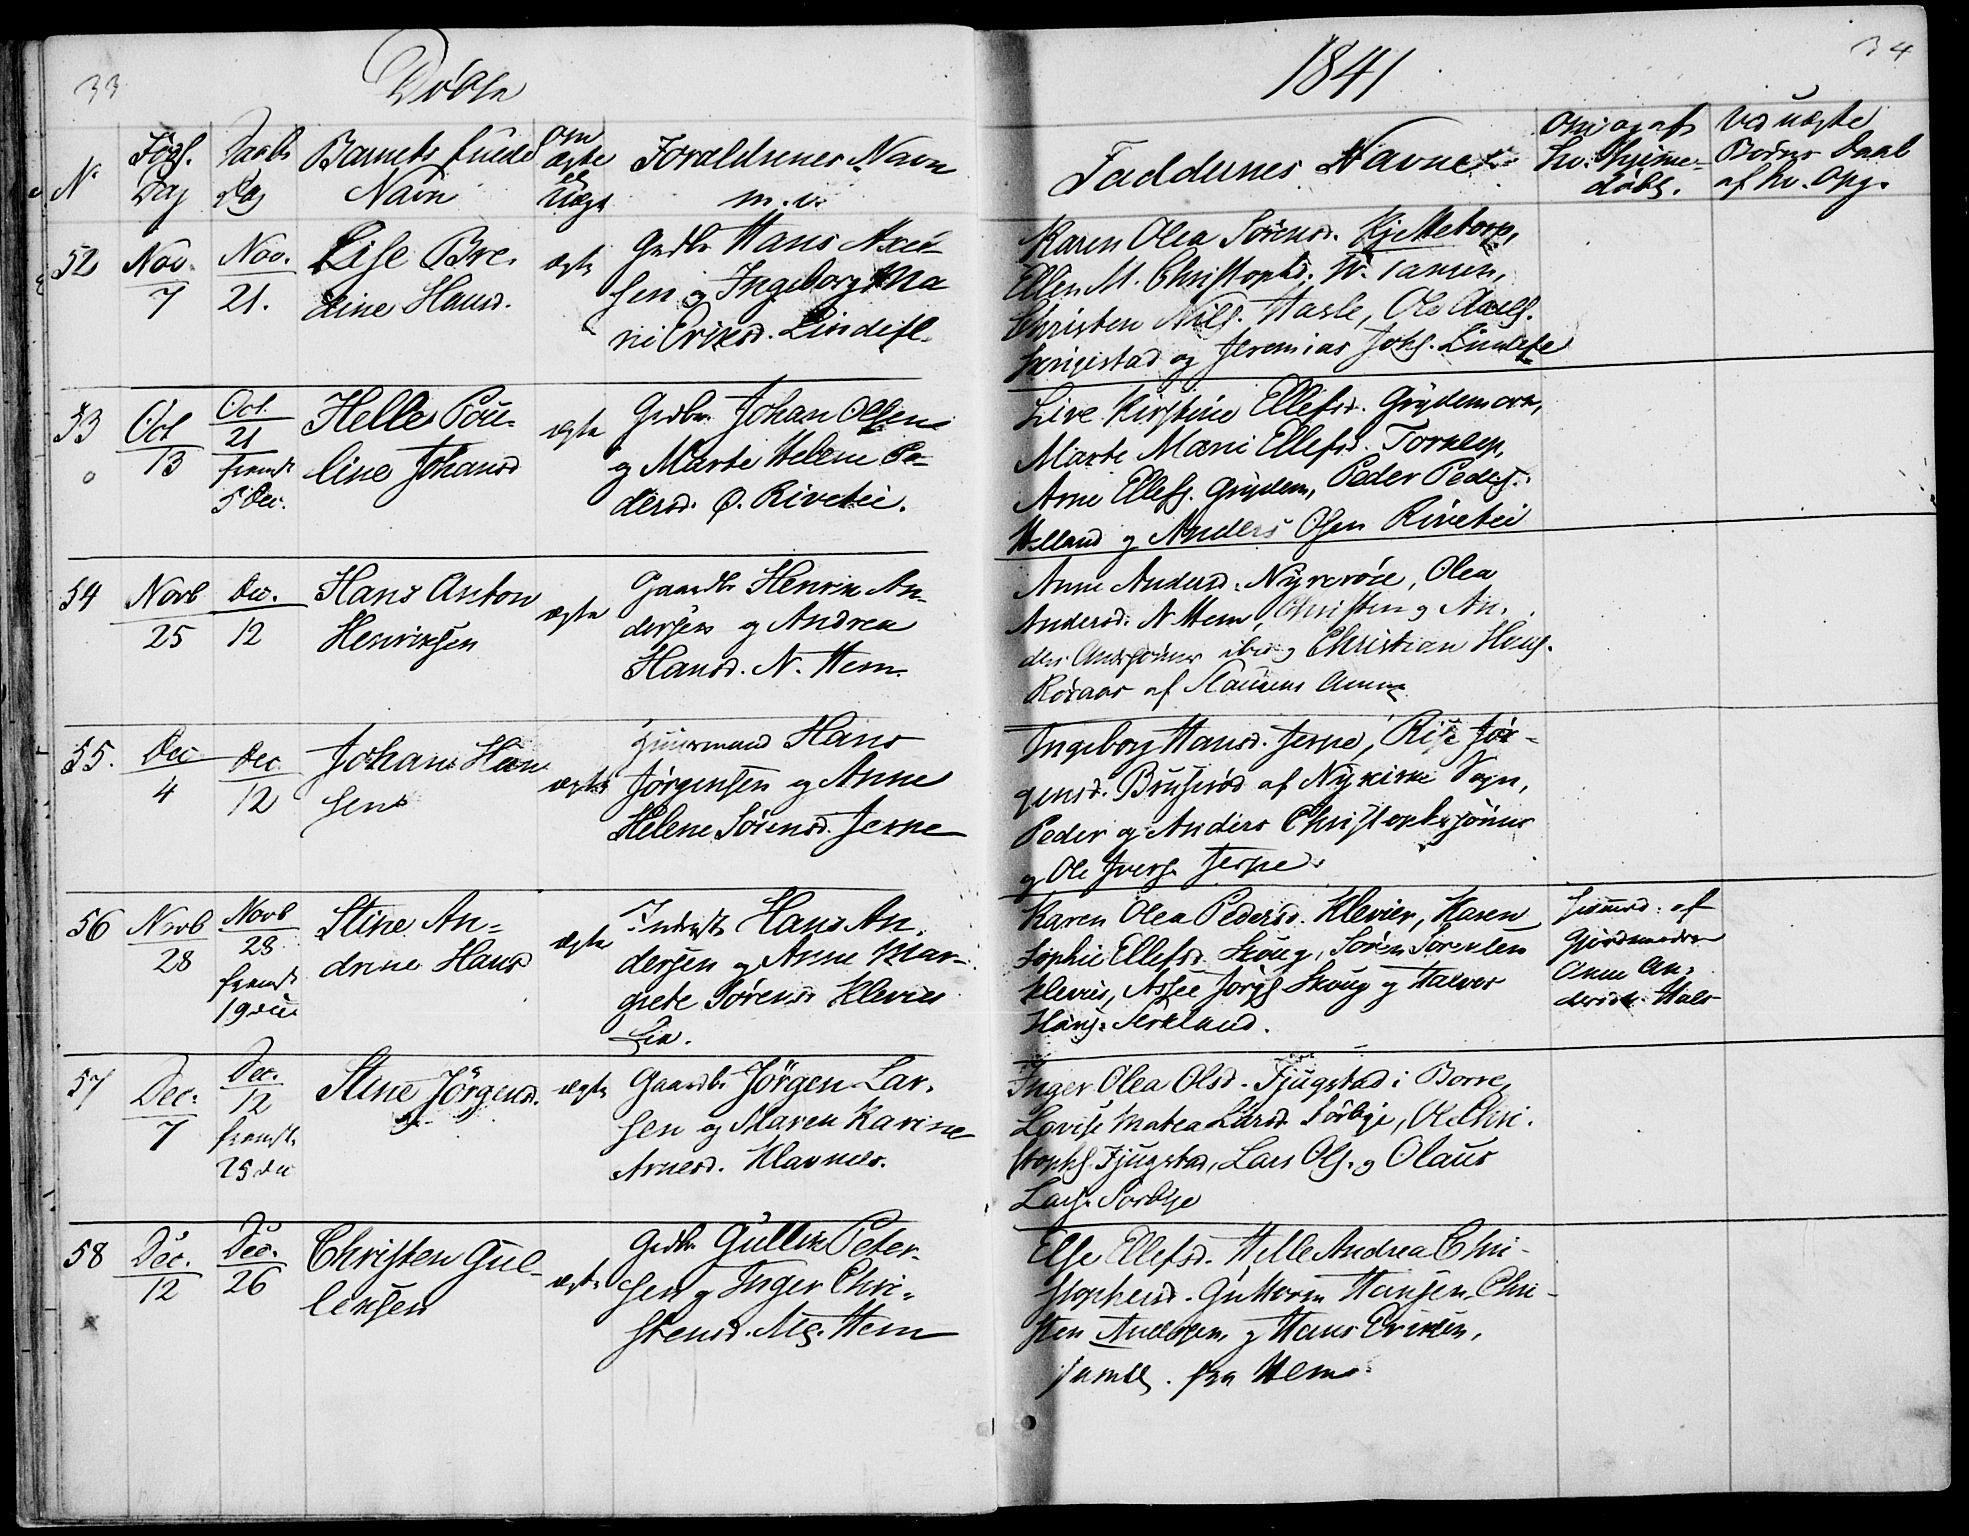 33
Döbte
1841
34
No
Föds. Dag
Daabs Dag
Barnets fulde Navn
Om ægte el. Uægt
Forældrenes Navn m.v.
Faddernes Navne
Om og af hv. hjemmedøbt.
Ved uægte Börns Daab af hv. Opg.
52
Nov. 7
Nov. 21.
Lise Bre-
dine Hansd.
ægte
Grdbr. Hans Axel-
sen og Ingeborg Ma
ri Eriksd. Lindefl.
Karen Olea Sörensd. Kjettetorp,
Ellen M. Christophd.
Christen Nils. Hasle, Ole Axels.
og Jeremias Johs. Lindefl
53
Oct 13
Oct. 21
fremst
5 Dec.
Helle Pou-
line Johansd
ægte
Grdbr. Johan Olsen
og Marte Helene Pe-
dersd. Ø. Rivetei.
Live Kirstine Ellefsd. Grydemoen,
Marte Marie Ellefsd. Torkelsp,
Arne Ellefs. Grydem, Peder Peders.
Helland og Anders Olsen Rivetei
54
Novb 25
Dec. 12
Hans Anton
Henriksen
ægte
Gaardbr. Henrik An-
dersen og Andrea
Hansd. N. Hem.
Anne Andersd. Nykeröie, Olea
Andersd. N. Hem, Christen og An-
ders Anderssönner ibid og Christian Hans.
Röraas af Slauens Annex
55.
Dec 4
Dec 12
Johan Han
sen
ægte
Huusmand Hans
Jørgensen og Anne
Helene Sörensd. Jerpe
Ingeborg Hansd. Jerpe, Rise Jör-
gensd. Bruseröd af Nykirke Sogn,
Peder og Anders Christophersönner
og Ole Ivers. Jerpe.
56
Novb 28
Novb 28
fremst
19 Dec
Stine An-
drine Hansd
ægte
Inderst Hans An-
dersen og Anne Mar-
grete Sörensd. Klevier
Lia.
Karen Olea Pedersd. Klevier, Karen
Sophie Ellefsd. Skoug, Sören Sörensen
Klevier, Jörgs Skoug og Halvor
Hans. Askland.
hjemmd. af
Gjordmoder
Anne An-
dersd.
57
Dec. 7
Dec. 12
fremst.
25 Dec
Stine Jörgensd.
ægte
Gaardbr. Jörgen Lar-
sen og Maren Karine
Arnesd. Klavnes.
Inger Olea Olsd. Fjugstad i Borre,
Lovise Matea Larsd. Sörbye, Ole Chri-
stophs. Fjugstad, Lars Ols. og Olaus
Lars. Sörbye
58
Dec. 12
Dec. 26
Christen Gul-
liksen
ægte
Grdbr. Gullik Peter-
sen og Inger Chri-
stensd. Hem
Else Ellefsd. Helle Andrea Chri-
stophersd. Guttorm Hansen, Chri-
sten Andersen, og Hans Eriksen,
samtl. fra Hem.